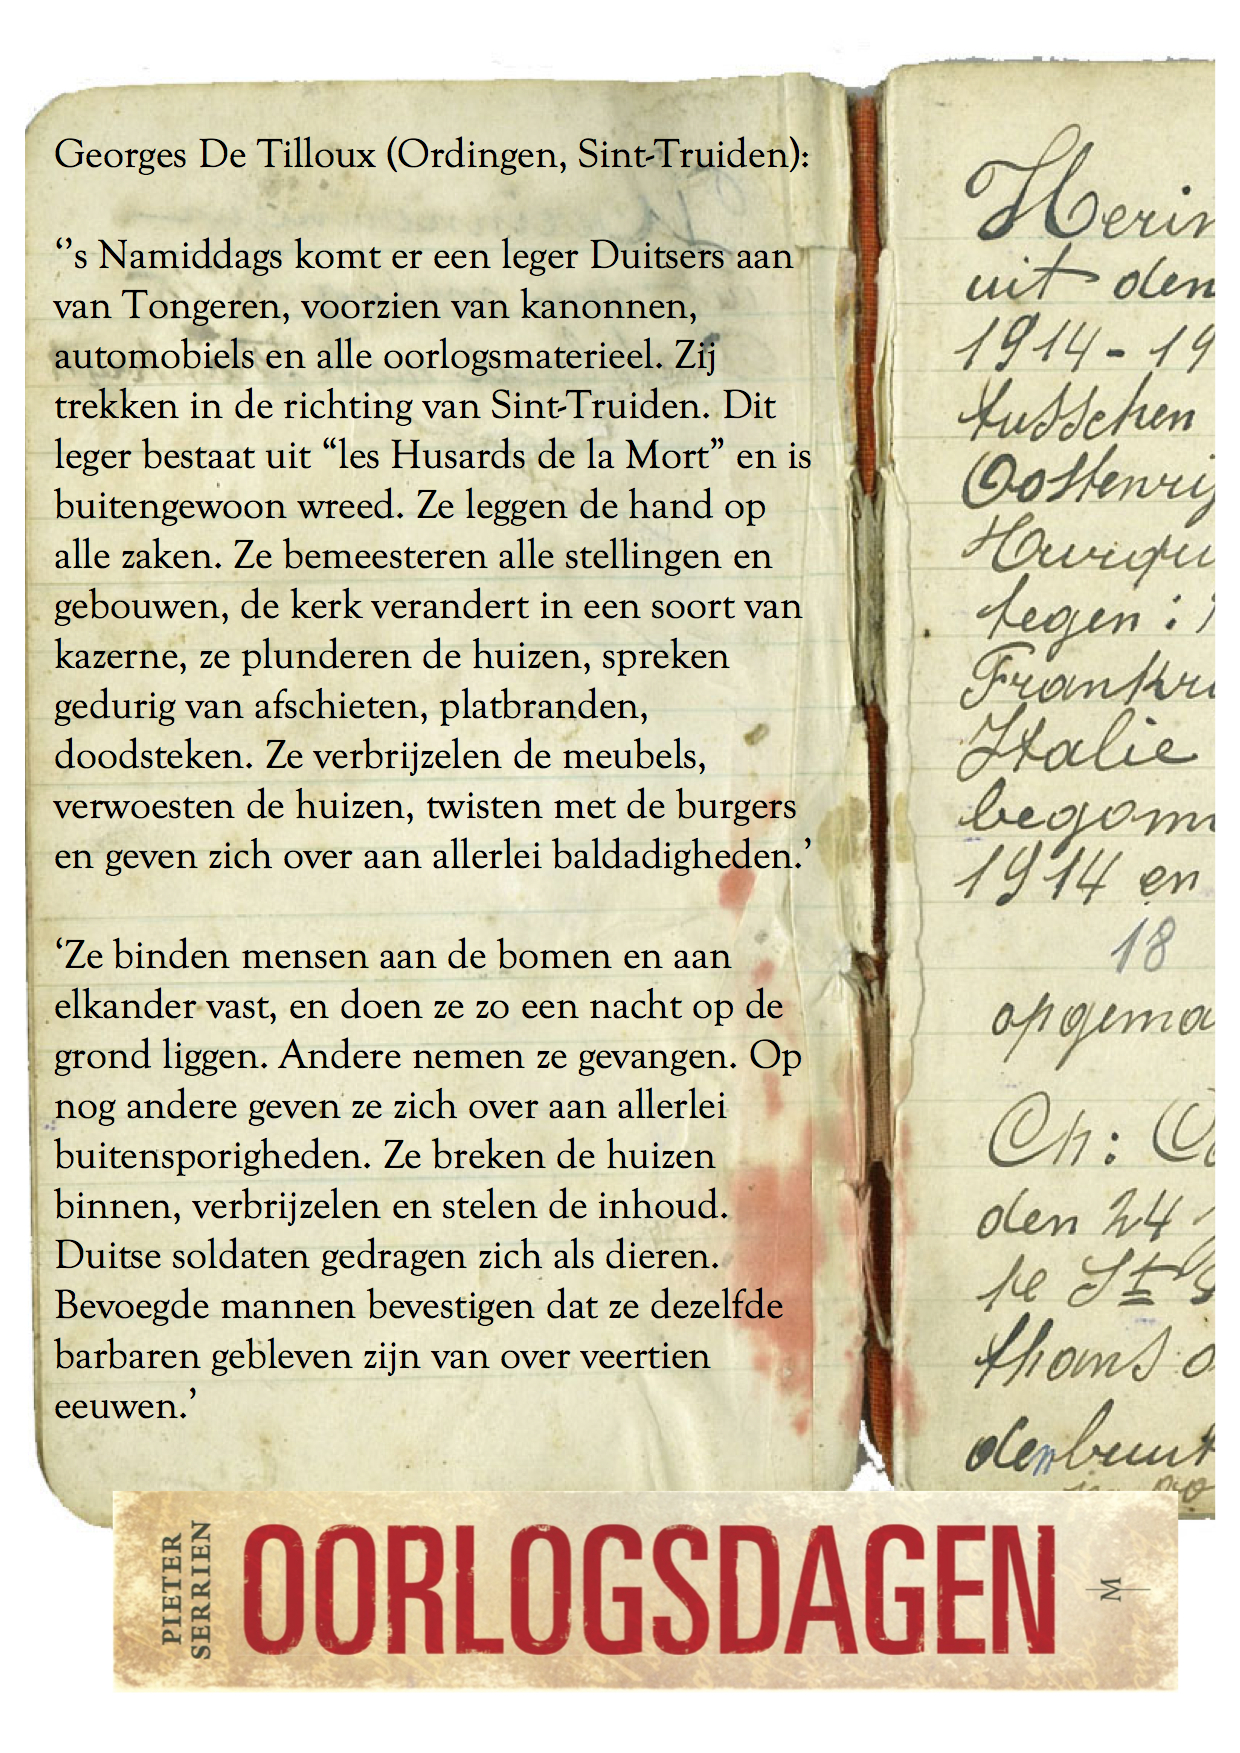 Georges De Tilloux (Ordingen, Sint-Truiden):
‘’s Namiddags komt er een leger Duitsers aan
van Tongeren, voorzien van kanonnen,
automobiels en alle oorlogsmaterieel. Zij
trekken in de richting van Sint-Truiden. Dit
leger bestaat uit “les Husards de la Mort” en is
buitengewoon wreed. Ze leggen de hand op
alle zaken. Ze bemeesteren alle stellingen en
gebouwen, de kerk verandert in een soort van
kazerne, ze plunderen de huizen, spreken
gedurig van afschieten, platbranden,
doodsteken. Ze verbrijzelen de meubels,
verwoesten de huizen, twisten met de burgers
en geven zich over aan allerlei baldadigheden.’
‘Ze binden mensen aan de bomen en aan
elkander vast, en doen ze zo een nacht op de
grond liggen. Andere nemen ze gevangen. Op
nog andere geven ze zich over aan allerlei
buitensporigheden. Ze breken de huizen
binnen, verbrijzelen en stelen de inhoud.
Duitse soldaten gedragen zich als dieren.
Bevoegde mannen bevestigen dat ze dezelfde
barbaren gebleven zijn van over veertien
eeuwen.’
Herin
uit den
1914-19
tusschen
Oostenrij
tegen :
Frankri
Italie
begonn
1914 en
18
opgema
Ch:
den 24
te St
thans
PIETER
SERRIEN
OORLOGSDAGEN
M